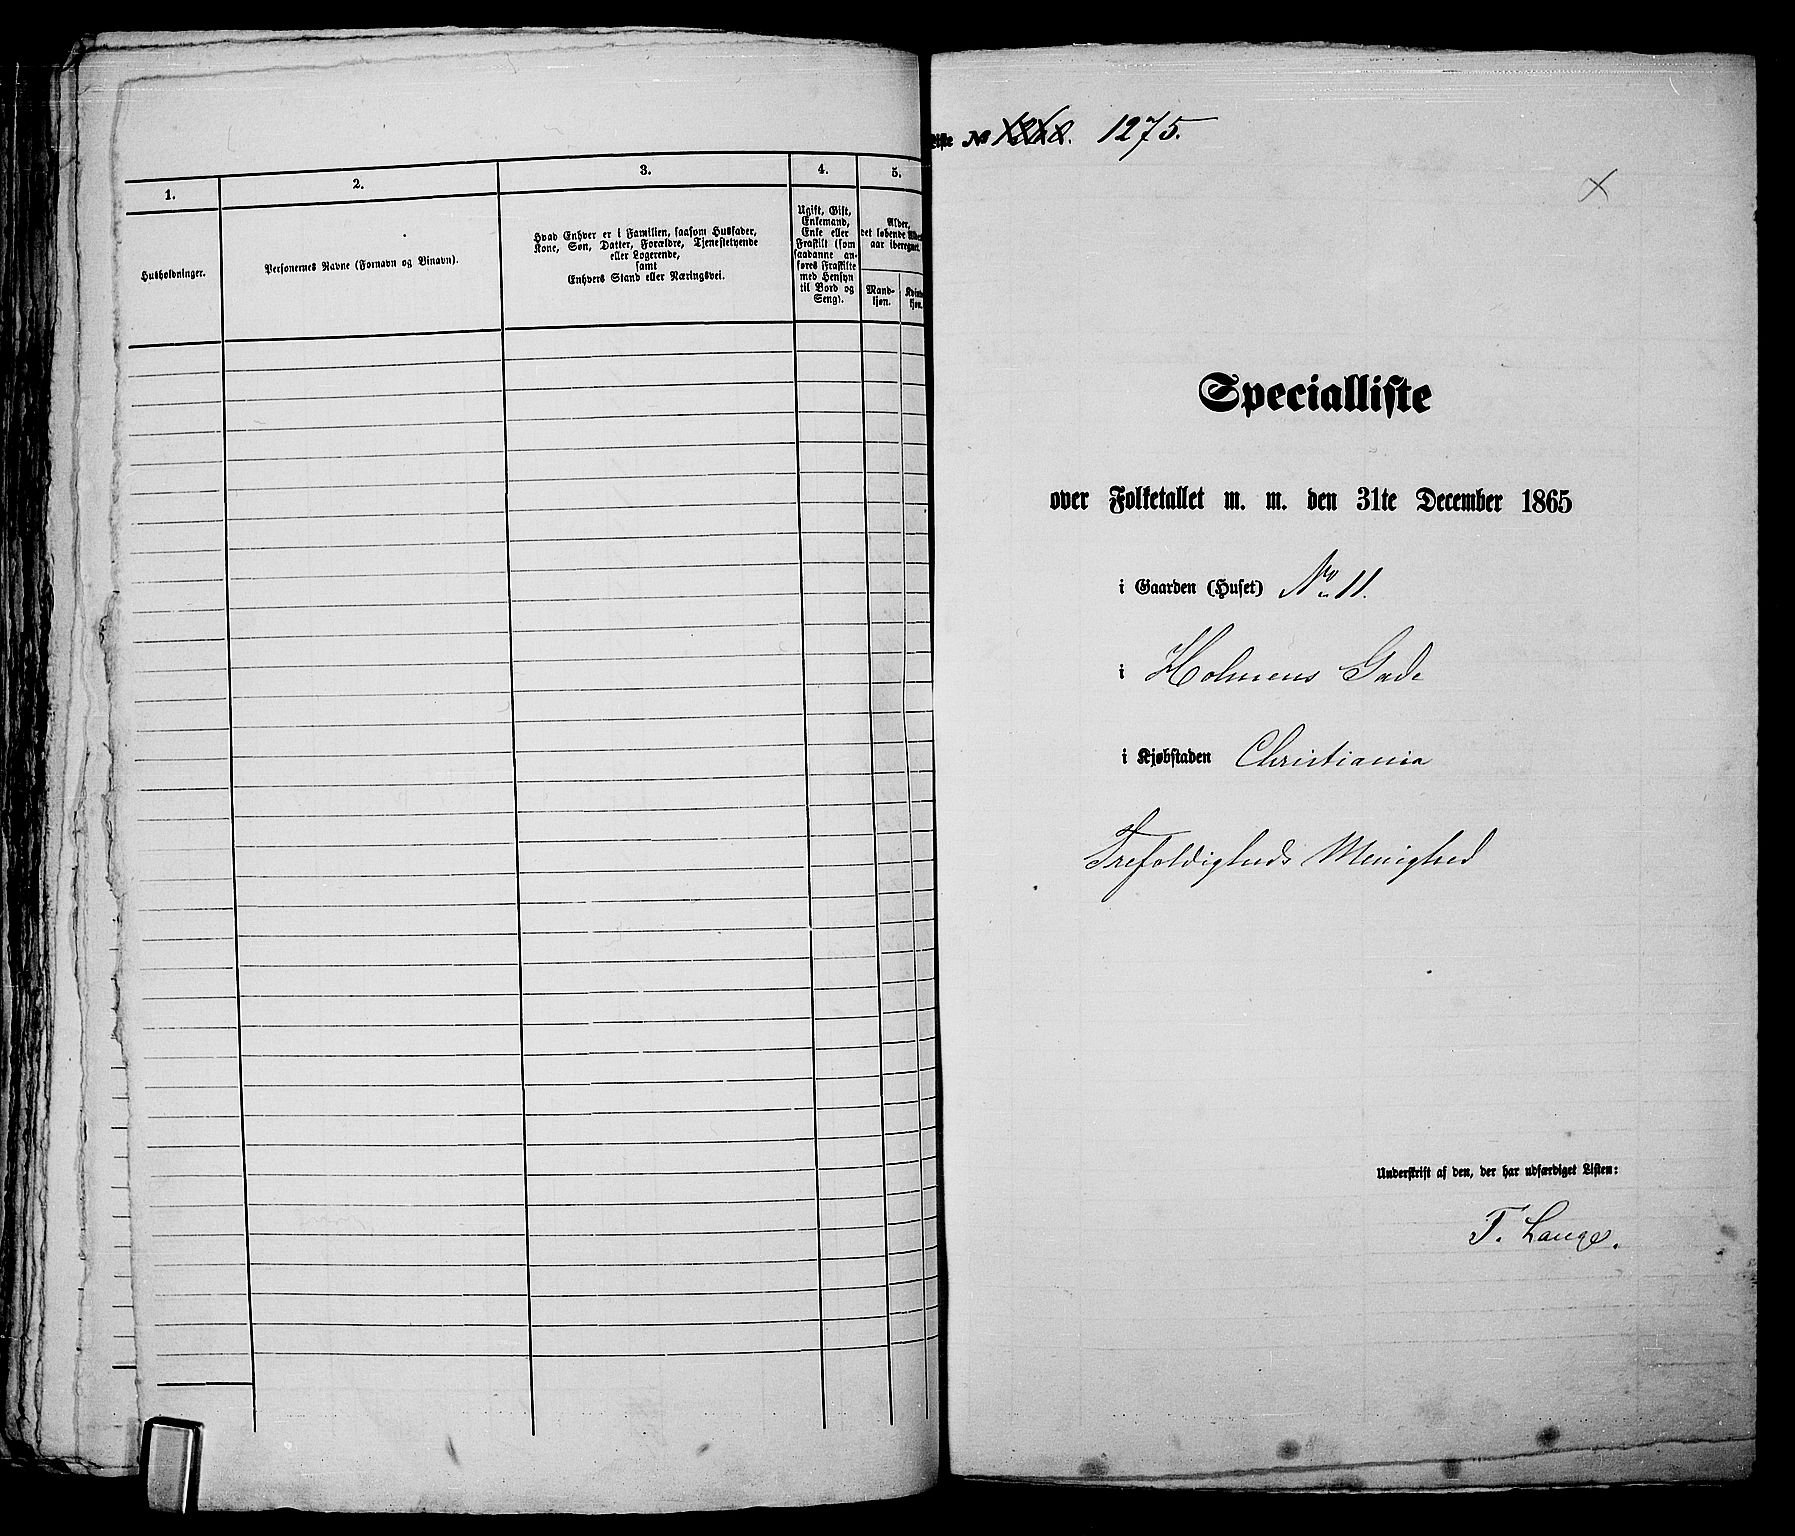 1.
2.
3.
4.
5.
Husholdninger.
Personernes Navne (Fornavn og Binavn).
Hvad Enhver er i Familien, saasom Husfader,
Kone, Søn, Datter, Forældre, Tjenestetyende
eller Logerende,
samt
Enhvers Stand eller Næringsvei.
Ugift, Gift,
Enkemand,
Enke eller
Fraskilt (som
saadanne an-
føres Fraskilte
med Hensyn
til Bord og
Seng).
Alder,
det løbende Alders-
aar iberegnet.
Mand-
kjøn.
Kvinde-
kjøn.
Liste No 1275.
Specialliste
over Folketallet m. m. den 31te December 1865
i Gaarden (Huset) No 11.
i Holmens Gade
i Kjøbstaden Christiania
Trefoldigheds Menighed
Underskrift af den, der har udfærdiget Listen:
T. Lange.